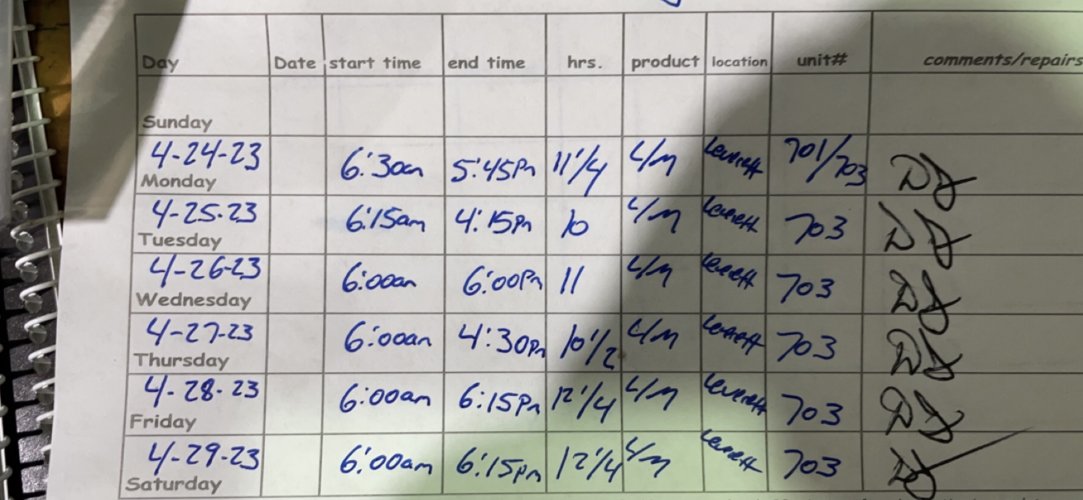 Day Date start time end time hrs. product location unit# comments/repairs
Sunday
4-24-23 6:30am 5:45Pm 11 1/4 L/M Leverett 701/703 DJ
Monday
4-25-23 6:15am 4:15Pm 10 L/M Leverett 703 DJ
Tuesday
4-26-23 6:00am 6:00Pm 11 L/M Leverett 703 DJ
Wednesday
4-27-23 6:00am 4:30Pm 10 1/2 L/M Leverett 703 DJ
Thursday
4-28-23 6:00am 6:15Pm 12 1/4 L/M Leverett 703 DJ
Friday
4-29-23 6:00am 6:15pm 12 1/4 L/M Leverett 703 DJ
Saturday